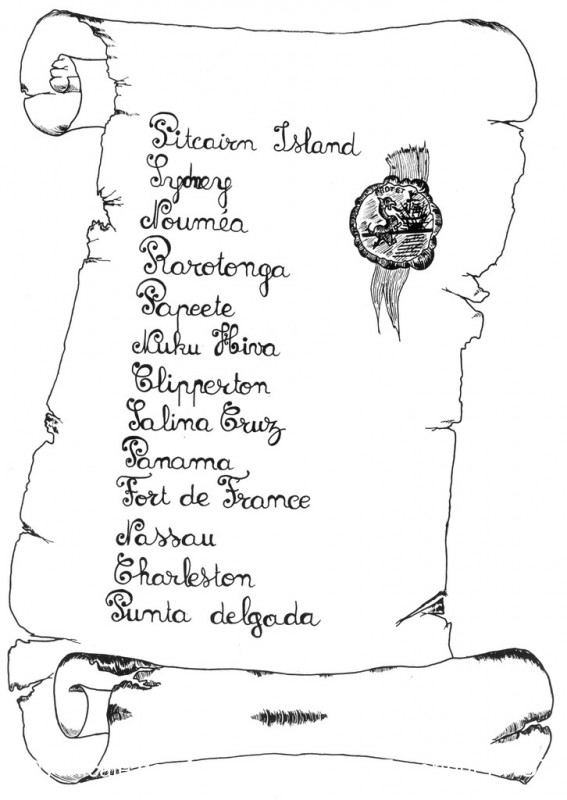 Pitcairn Island
Sydney
Nouméa
Rarotonga
Papeete
Nuku Hiva
Clipperton
Salina Cruz
Panama
Fort de France
Nassau
Charleston
Punta delgada